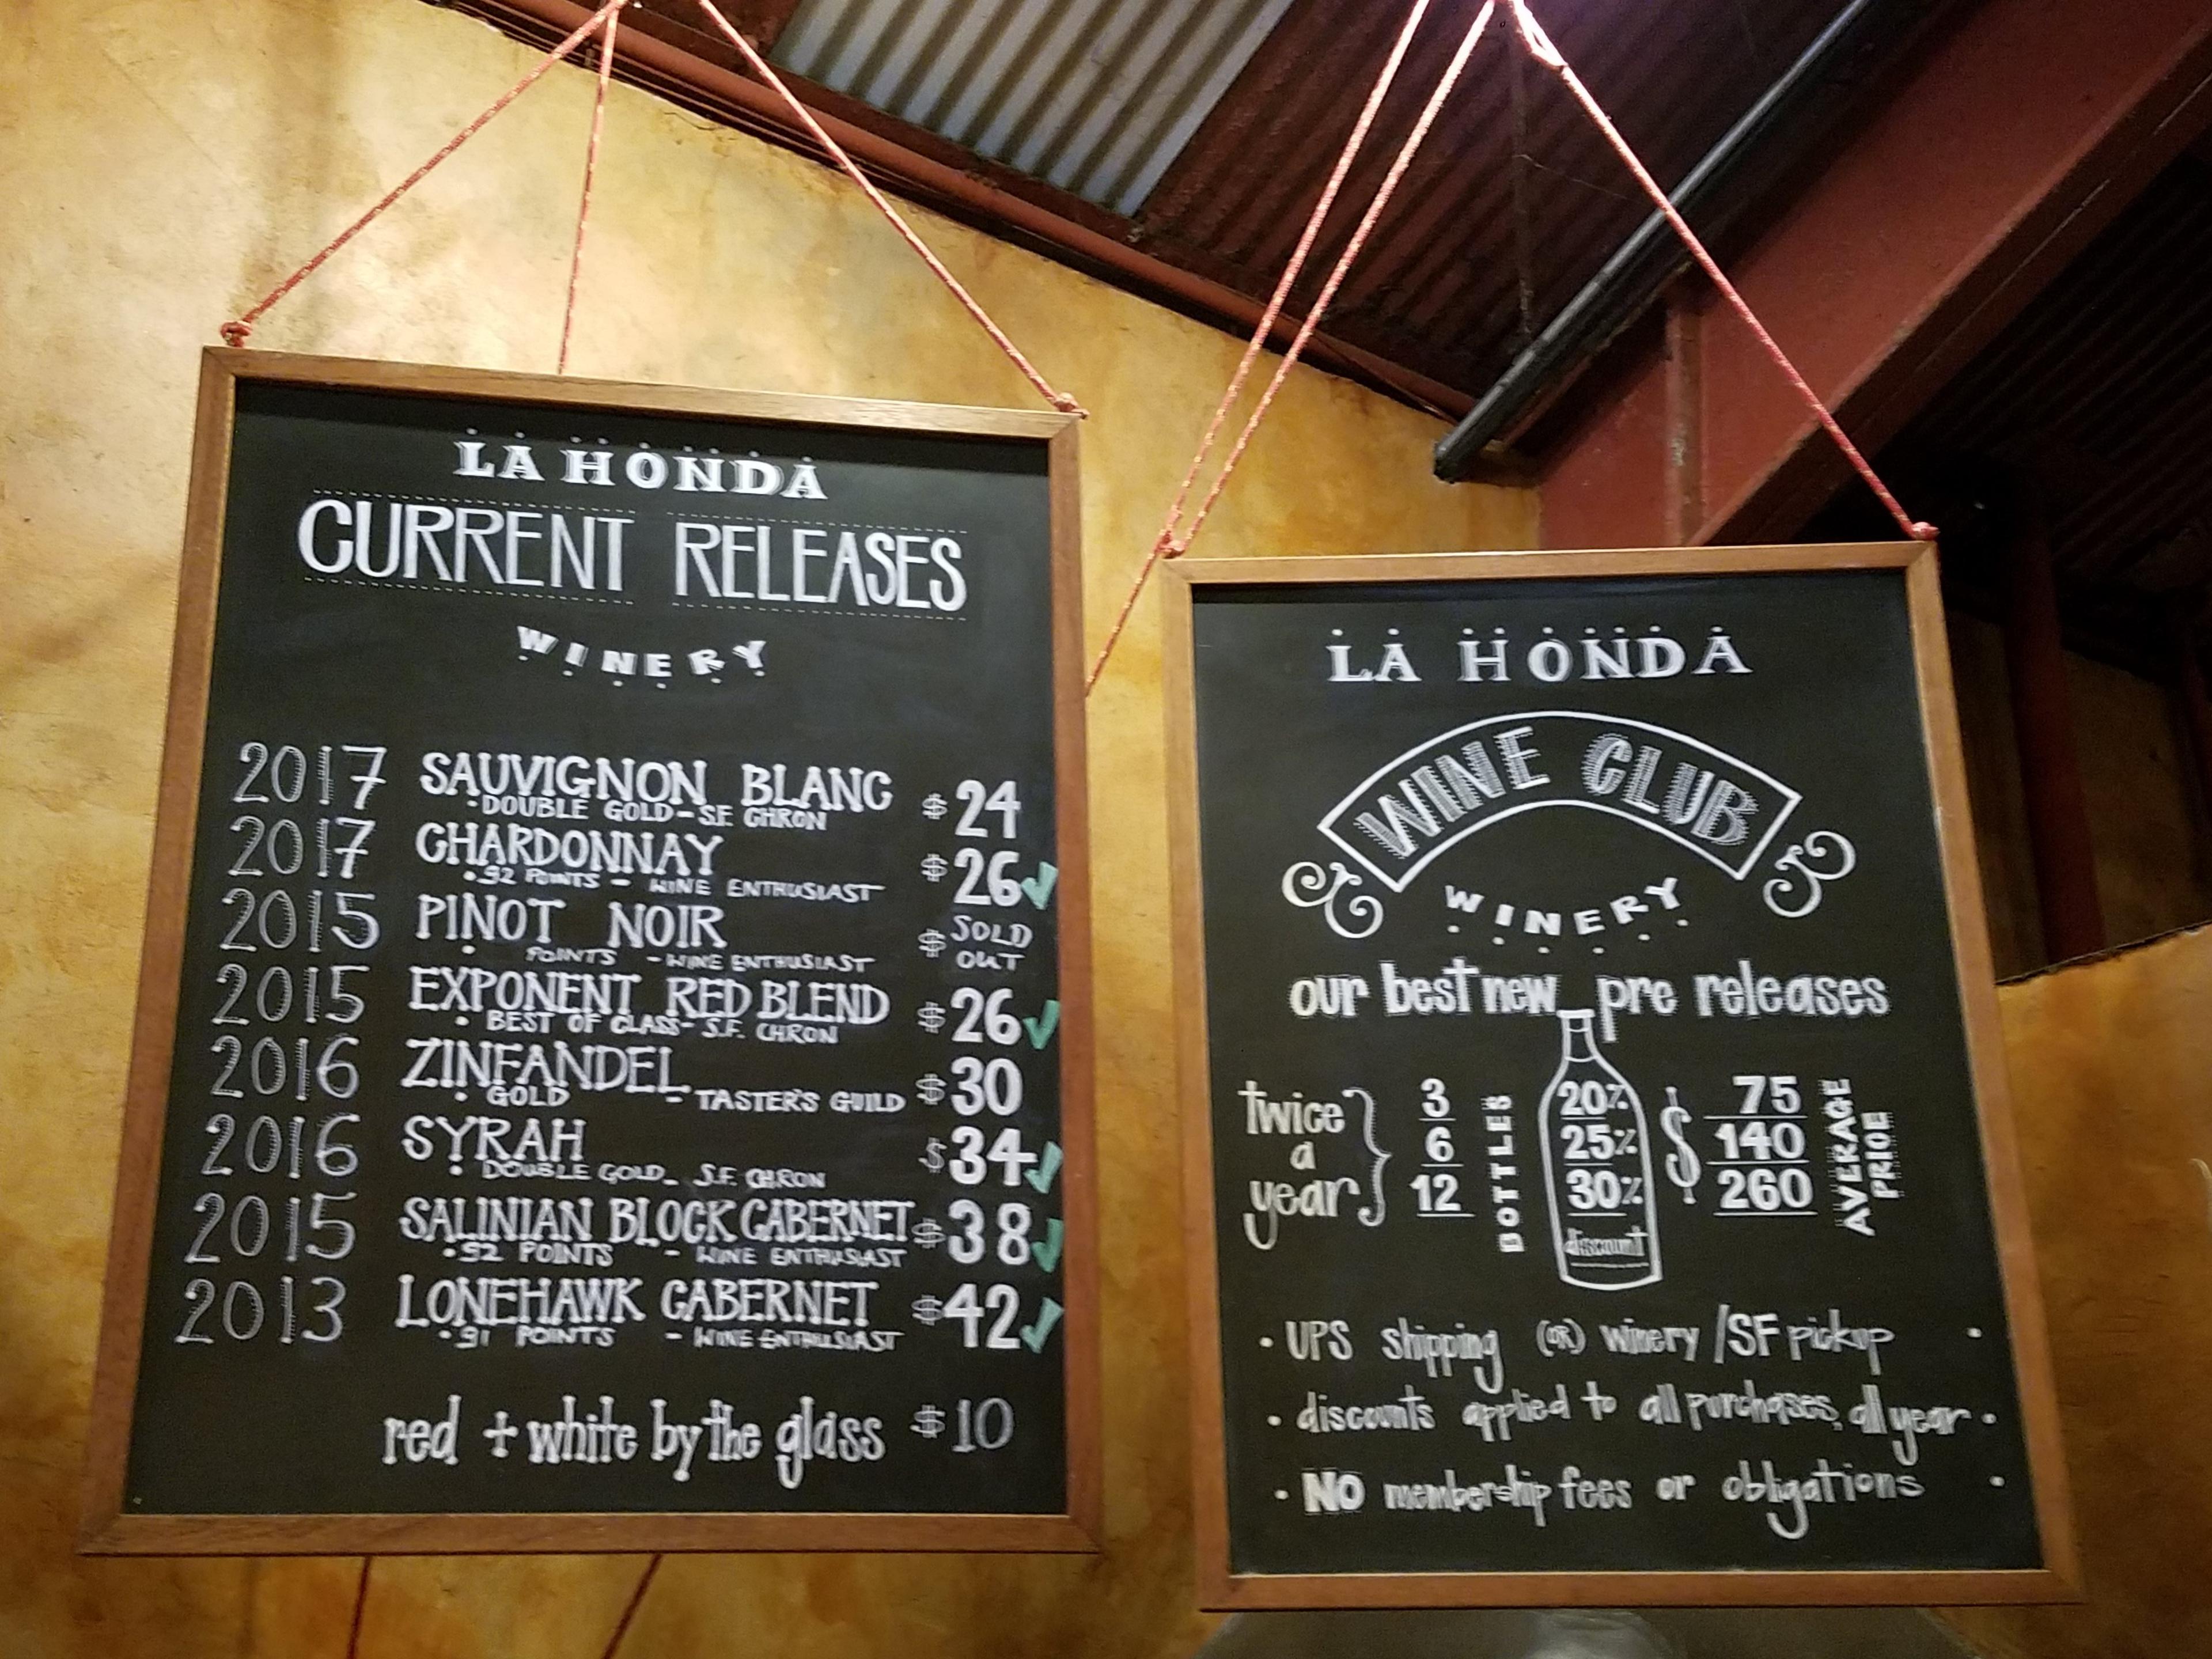 LA HONDA
CURRENT RELEASES
WINERY
2017 SAUVIGNON BLANC $24
• DOUBLE GOLD - SF CHRON
2017 CHARDONNAY $26 ✓
• 92 POINTS - WINE ENTHUSIAST
2015 PINOT NOIR $ SOLD OUT
• POINTS - WINE ENTHUSIAST
2015 EXPONENT RED BLEND $26 ✓
• BEST OF CLASS - S.F. CHRON
2016 ZINFANDEL $30
• GOLD - TASTER'S GUILD
2016 SYRAH $34 ✓
• DOUBLE GOLD - S.F. CHRON
2015 SALINIAN BLOCK CABERNET $38 ✓
• 92 POINTS - WINE ENTHUSIAST
2013 LONEHAWK CABERNET $42 ✓
• 91 POINTS - WINE ENTHUSIAST
red + white by the glass $10
LA HONDA
WINE CLUB
WINERY
our best new pre releases
twice a year } 3 6 12 BOTTLES 20% 25% 30% discount $ 75 140 260 AVERAGE PRICE
• UPS shipping (OR) winery / SF pickup •
• discounts applied to all purchases, all year •
• NO membership fees or obligations •